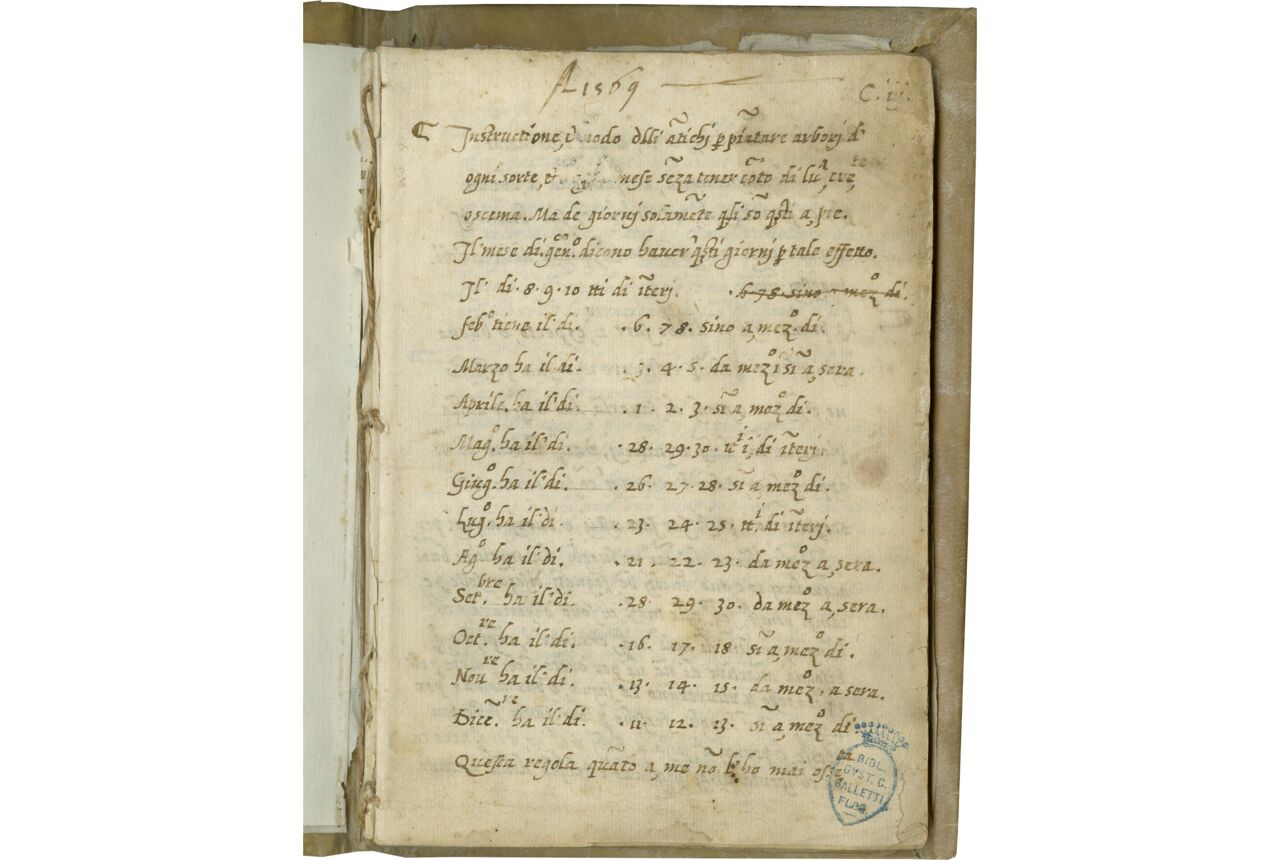 A 1569
C. iij.
Instructione, et modo dlli ãtichj p piãtare arborj d'
ogni sorte, et mese sẽza tener cõto di luã, cre^te,
o scema. Ma de giornj solamẽte q̃li sõ q̃sti a, pie.
Il mese di gẽn^o. dicono haver q̃sti giornj p tale effetto.
Il di · 8 · 9 · 10 tti di ĩterj. · 6 7 8 · sino a mez^o di.
Feb^o tiene il di. · 6 · 7 8 · sino a, mez^o di.
Marzo ha il di. · 3 · 4 · 5 · da mez^o ĩ sĩ a, sera.
Aprile. ha il di. · 1 · 2 · 3 · sĩ a, mez^o di.
Mag^o. ha il di. · 28 · 29 · 30 · tt^i, di ĩterj.
Giug^o. ha il di. · 26 · 27 · 28 · sĩ a mez^o di.
Lug^o. ha il di. · 23 · 24 · 25 · tt^i. di ĩterj.
Ag^o ha il di. · 21 · 22 · 23 · da mez^o a, sera.
Set^bre. ha il di. · 28 · 29 · 30 · da mez^o a, sera.
Oct^re. ha il di. · 16 · 17 · 18 sĩ a, mez^o di.
Nou^re ha il di. · 13 · 14 · 15 · da mez^o, a sera.
Dicẽ^re. ha il di. · 11 · 12 · 13 · sĩ a, mez^o di.
Questa regola quãto a, me nõ l'ho mai
BIBL.
GVST. C.
GALLETTI
FLOR.